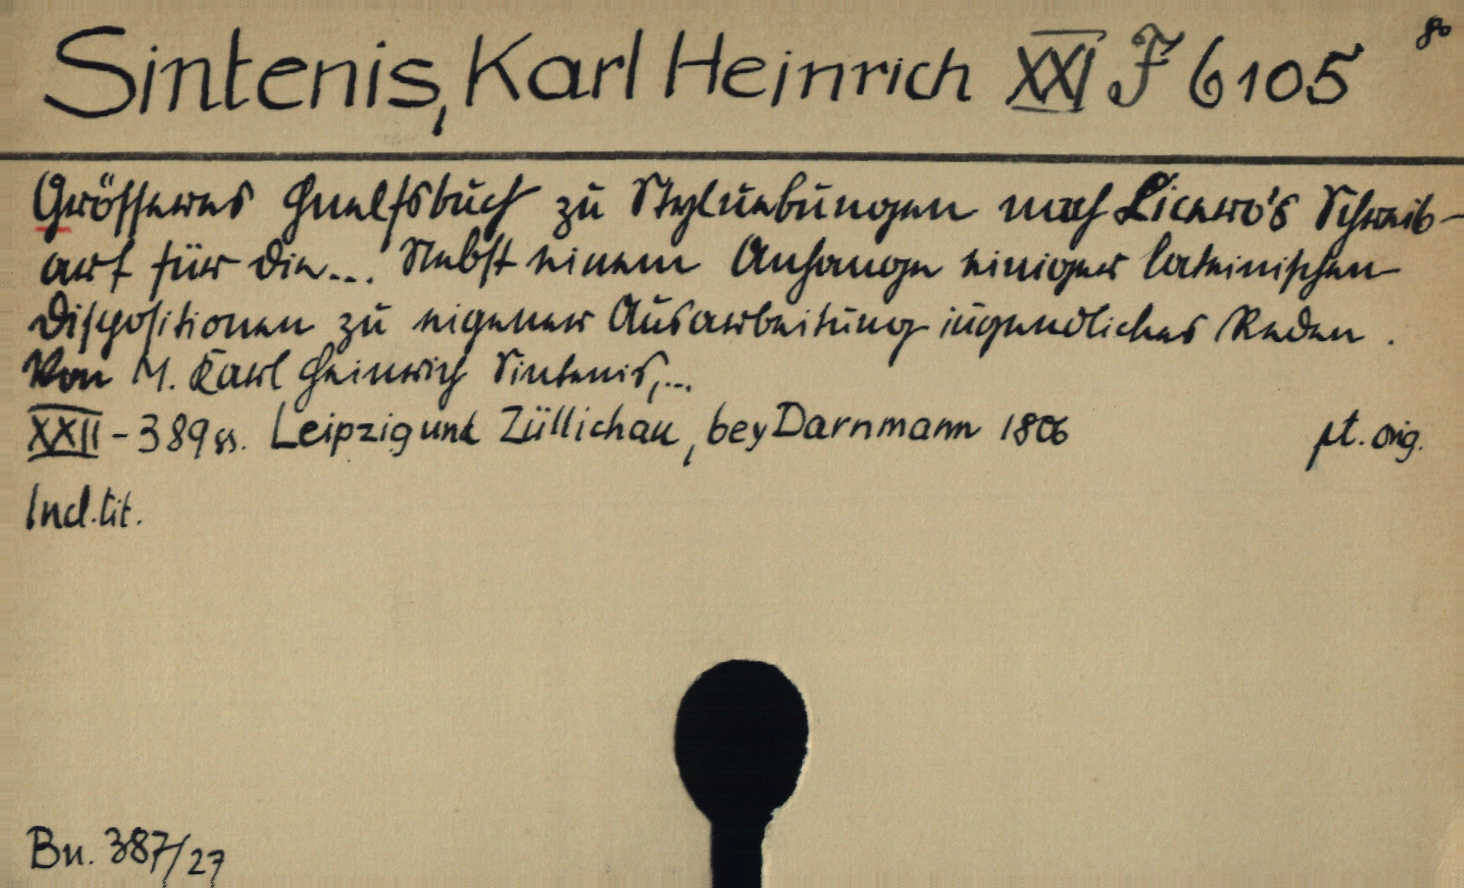 Sintenis, Karl Heinrich XXI F 6105 8º
Grösseres Huelfsbuch zu Styluebungen nach Cicero's Schreib-
art für die... Nebst einem Anhange einiger lateinischen
Dispositionen zu eigener Ausarbeitung jugendlicher Reden.
Von M. Karl Heinrich Sintenis,...
XXII - 389 ss. Leipzig und Züllichau, bey Darnmann 1806 pt. orig.
Ind. tit.
Bn. 387/27